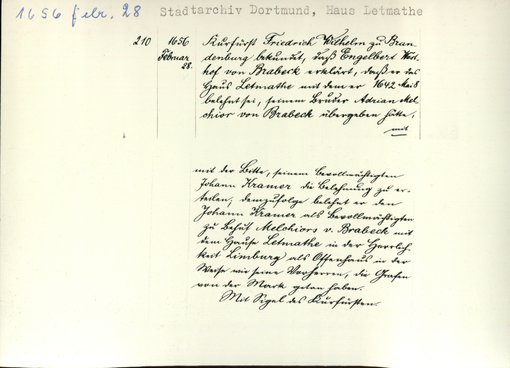 1656 febr. 28
Stadtarchiv Dortmund, Haus Letmathe
210 1656 Februar 28.
Kurfürst Friedrich Wilhelm zu Bran-
denburg bekundet, daß Engelbert West-
hof von Brabeck erklärt, daß er das
Haus Letmathe mit dem er 1642 Mai 8
belehnt sei, seinem Bruder Adrian Mel-
chior von Brabeck übergeben hätte,
mit
mit der Bitte, seinem bevollmächtigten
Johann Kramer die Belehnung zu er-
teilen, demzufolge belehnt er den
Johann Kramer als bevollmächtigten
zu Behuf Melchiors v. Brabeck mit
dem Hause Letmathe in der Herrlich-
keit Limburg als Offenhaus in der
Weise wie seine Vorherren, die Grafen
von der Mark getan haben.
Mit Sigel des Kurfürsten.